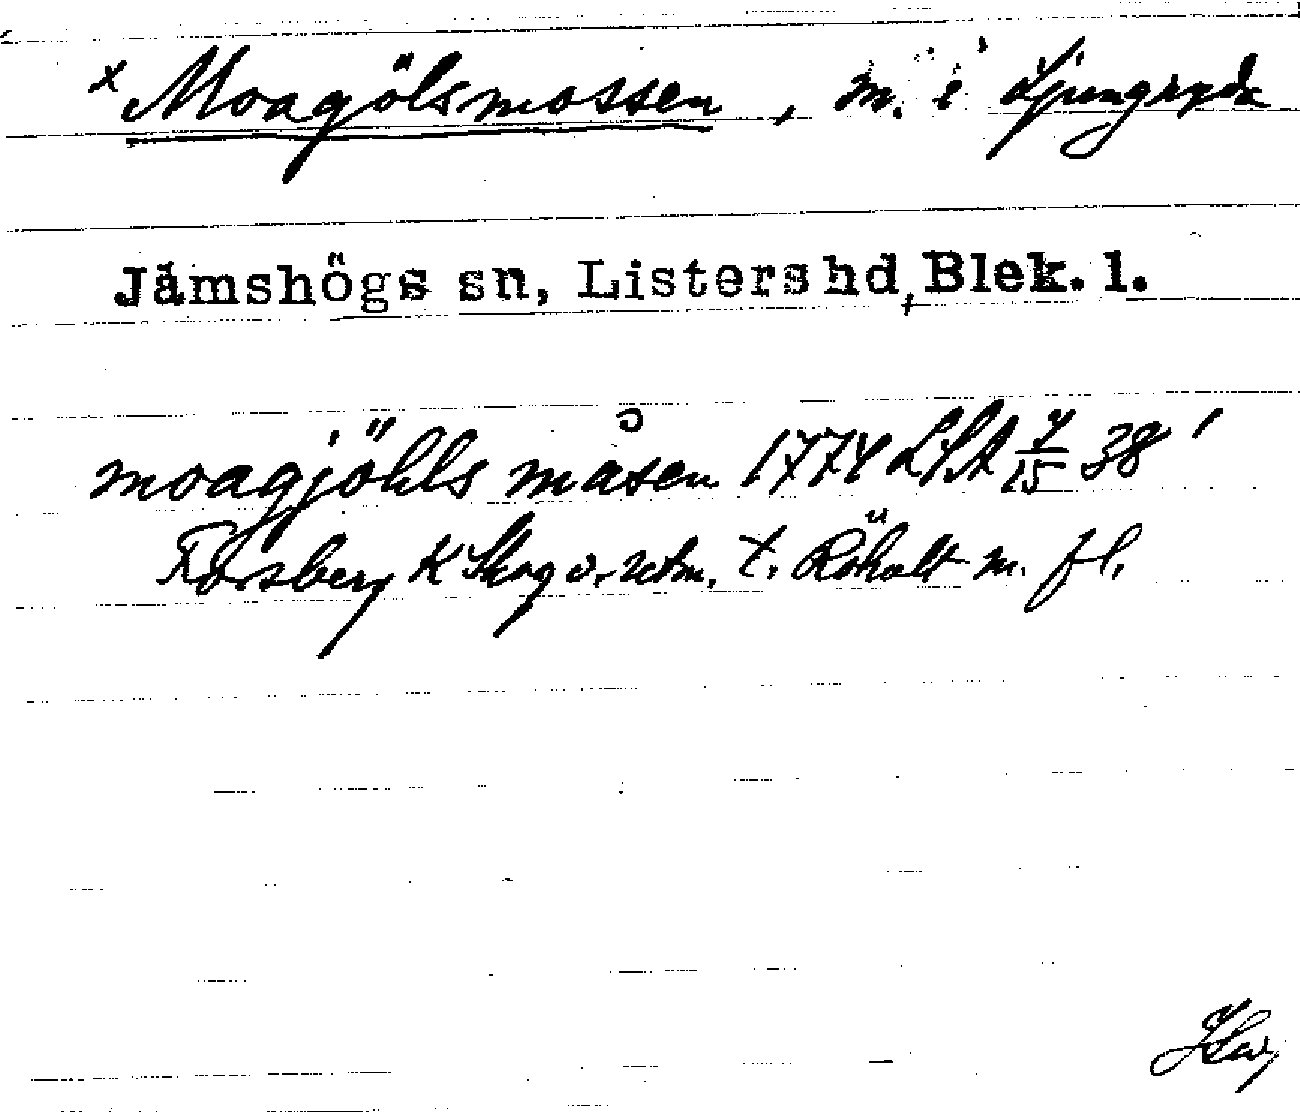 x Moagölsmossen, m. i Ljungryda
Jämshögs sn, Listers hd, Blek. l.
moagjöhls måsen 1774 LSA 7/15 38'
Forsberg K Skog o. utm. t. Röholt m. fl.